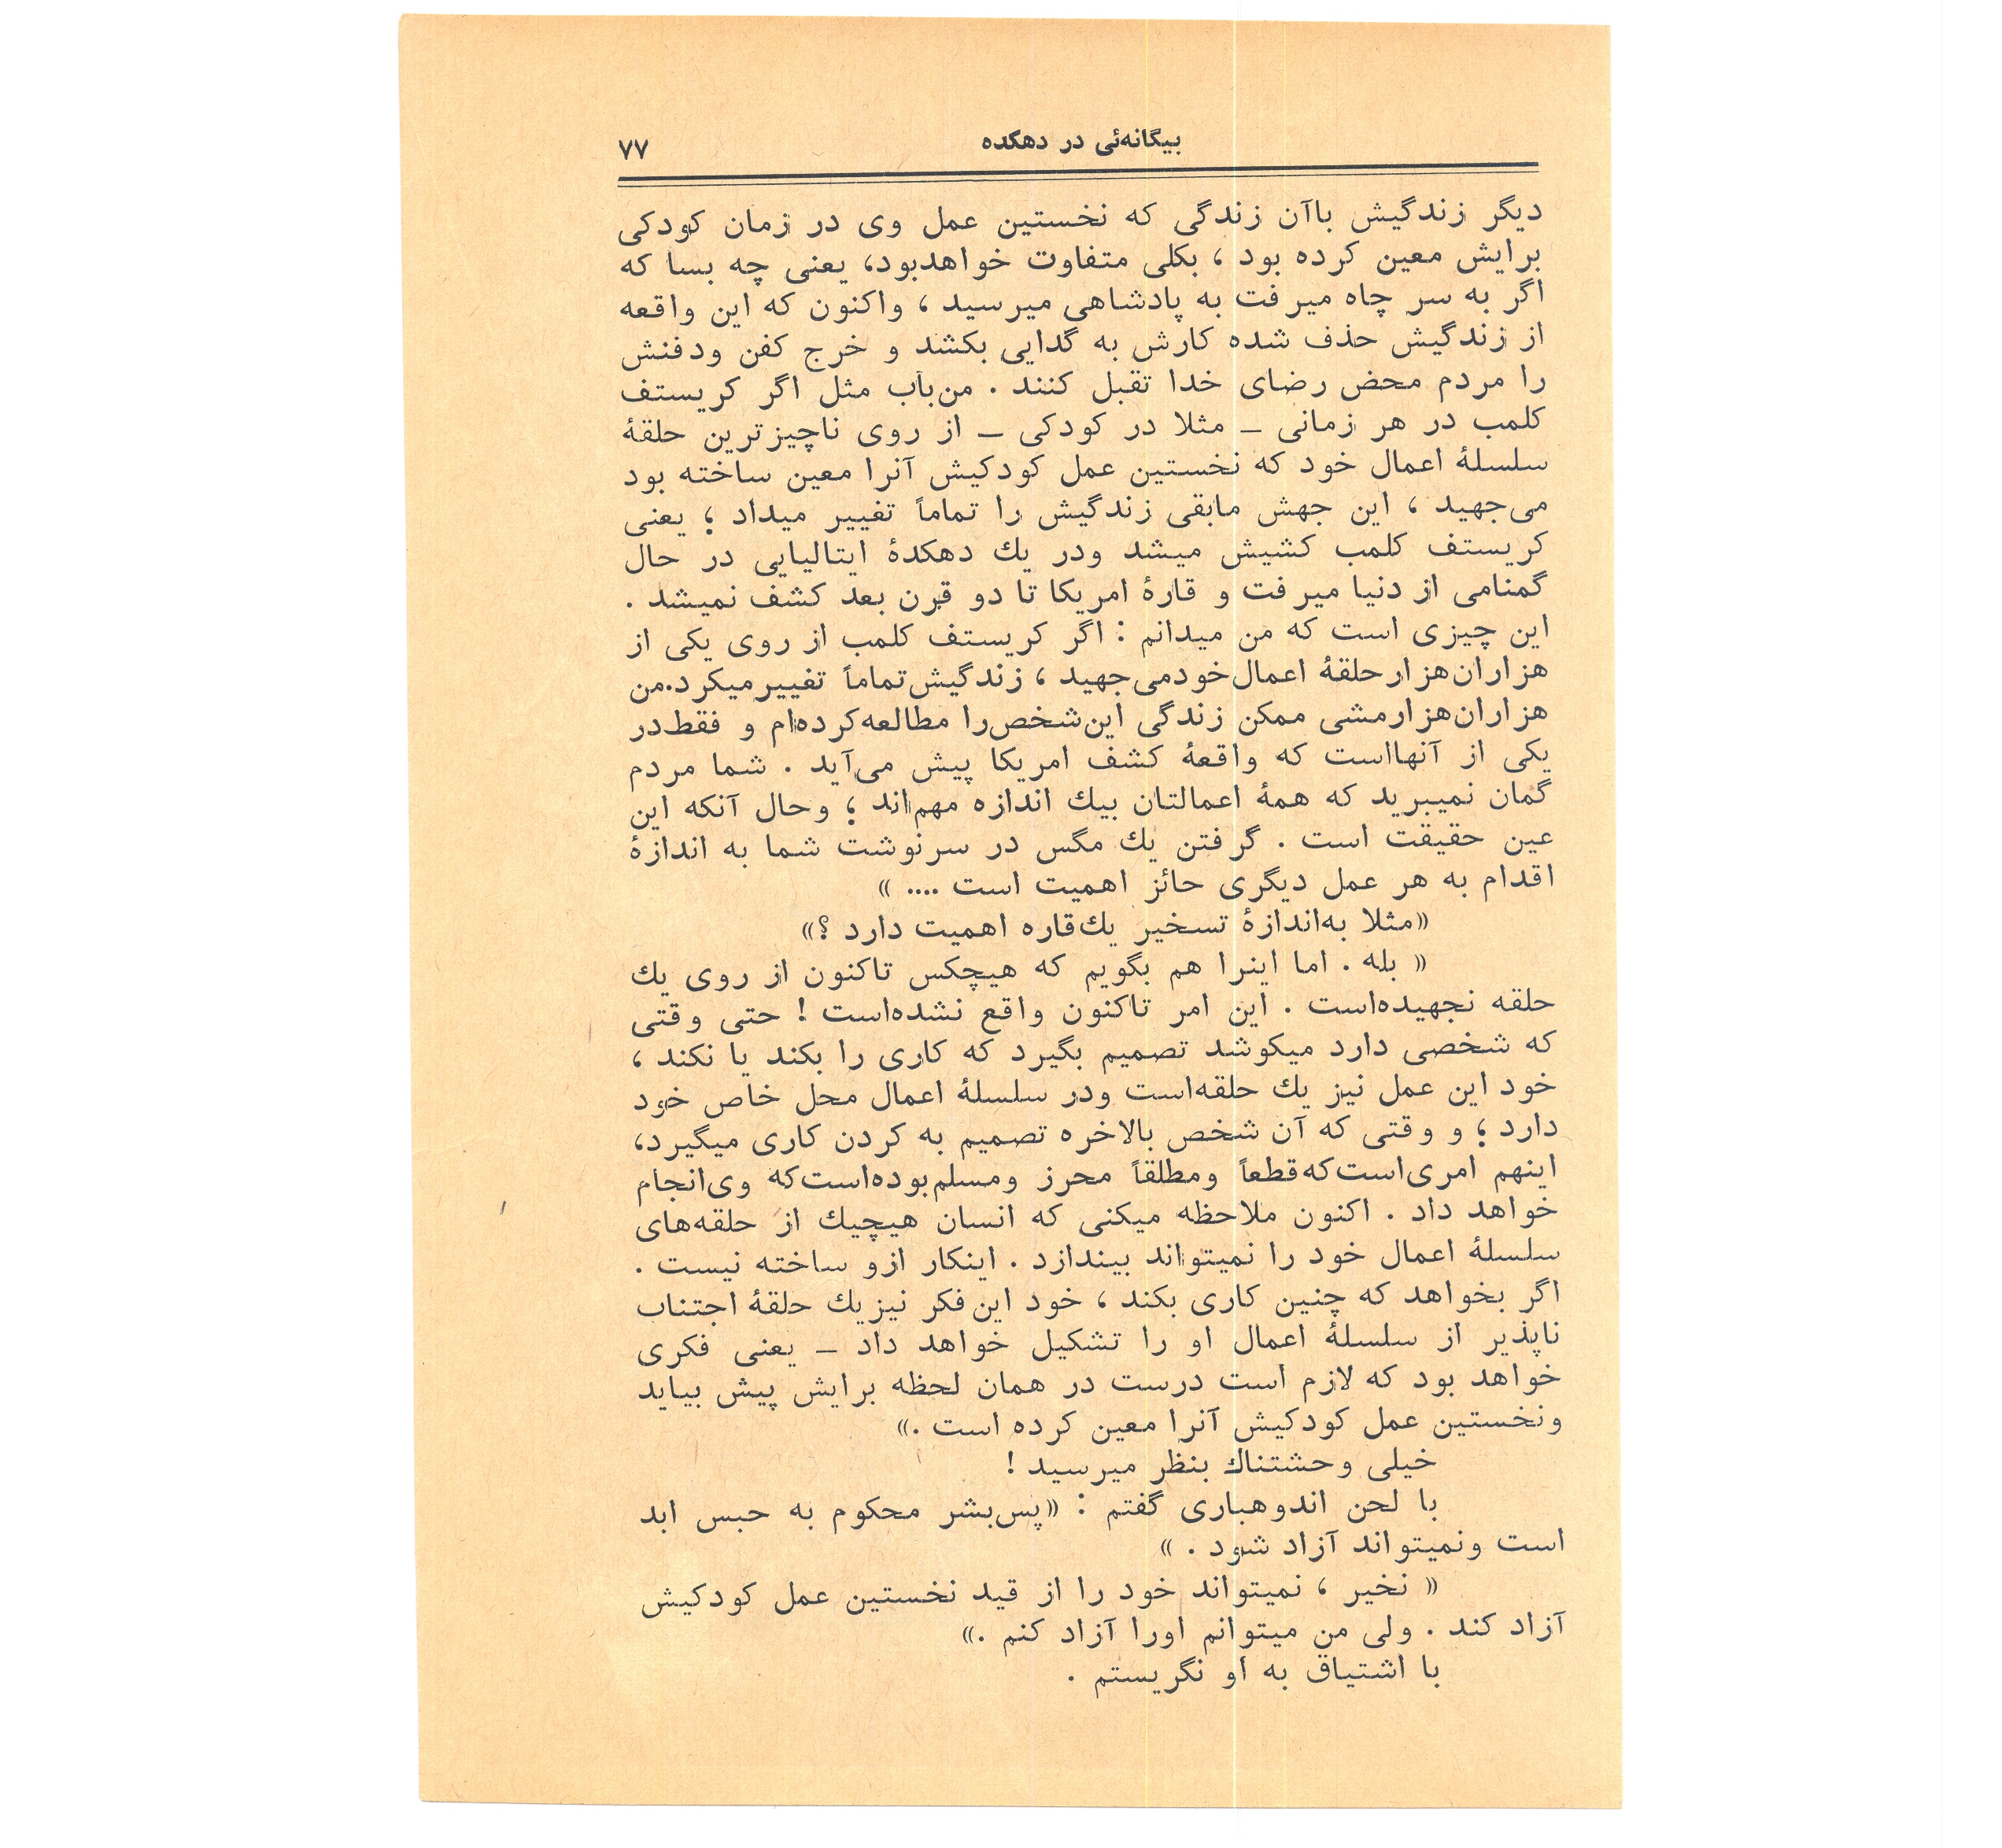 بیگانه‌ئی در دهکده
۷۷
دیگر زندگیش باآن زندگی که نخستین عمل وی در زمان کودکی
برایش معین کرده بود ، بکلی متفاوت خواهدبود، یعنی چه بسا که
اگر به سر چاه میرفت به پادشاهی میرسید ، واکنون که این واقعه
از زندگیش حذف شده کارش به گدایی بکشد و خرج کفن ودفنش
را مردم محض رضای خدا تقبل کنند . من‌باب مثل اگر کریستف
کلمب در هر زمانی – مثلا در کودکی – از روی ناچیزترین حلقهٔ
سلسلهٔ اعمال خود که نخستین عمل کودکیش آنرا معین ساخته بود
می‌جهید ، این جهش مابقی زندگیش را تماماً تغییر میداد ؛ یعنی
کریستف کلمب کشیش میشد ودر یك دهکدهٔ ایتالیایی در حال
گمنامی از دنیا میرفت و قارهٔ امریکا تا دو قرن بعد کشف نمیشد .
این چیزی است که من میدانم : اگر کریستف کلمب از روی یکی از
هزاران‌هزارحلقهٔ اعمال‌خودمی‌جهید ، زندگیش‌تماماً تغییرمیکرد.من
هزاران‌هزارمشی ممکن زندگی این‌شخص‌را مطالعه‌کرده‌ام و فقط‌در
یکی از آنهااست که واقعهٔ کشف امریکا پیش می‌آید . شما مردم
گمان نمیبرید که همهٔ اعمالتان بیك اندازه مهم‌اند ؛ وحال آنکه این
عین حقیقت است . گرفتن یك مگس در سرنوشت شما به اندازهٔ
اقدام به هر عمل دیگری حائز اهمیت است .... »
«مثلا به‌اندازهٔ تسخیر یك‌قاره اهمیت دارد ؟»
« بله . اما اینرا هم بگویم که هیچکس تاکنون از روی یك
حلقه نجهیده‌است . این امر تاکنون واقع نشده‌است ! حتی وقتی
که شخصی دارد میکوشد تصمیم بگیرد که کاری را بکند یا نکند ،
خود این عمل نیز یك حلقه‌است ودر سلسلهٔ اعمال محل خاص خود
دارد ؛ و وقتی که آن شخص بالاخره تصمیم به کردن کاری میگیرد،
اینهم امری‌است‌که‌قطعاً ومطلقاً محرز ومسلم‌بوده‌است‌که وی‌انجام
خواهد داد . اکنون ملاحظه میکنی که انسان هیچیك از حلقه‌های
سلسلهٔ اعمال خود را نمیتواند بیندازد . اینکار ازو ساخته نیست .
اگر بخواهد که چنین کاری بکند ، خود این‌فکر نیزیك حلقهٔ اجتناب
ناپذیر از سلسلهٔ اعمال او را تشکیل خواهد داد – یعنی فکری
خواهد بود که لازم است درست در همان لحظه برایش پیش بیاید
ونخستین عمل کودکیش آنرا معین کرده است .»
خیلی وحشتناك بنظر میرسید !
با لحن اندوهباری گفتم : «پس‌بشر محکوم به حبس ابد
است ونمیتواند آزاد شود . »
« نخیر ، نمیتواند خود را از قید نخستین عمل کودکیش
آزاد کند . ولی من میتوانم اورا آزاد کنم .»
با اشتیاق به او نگریستم .